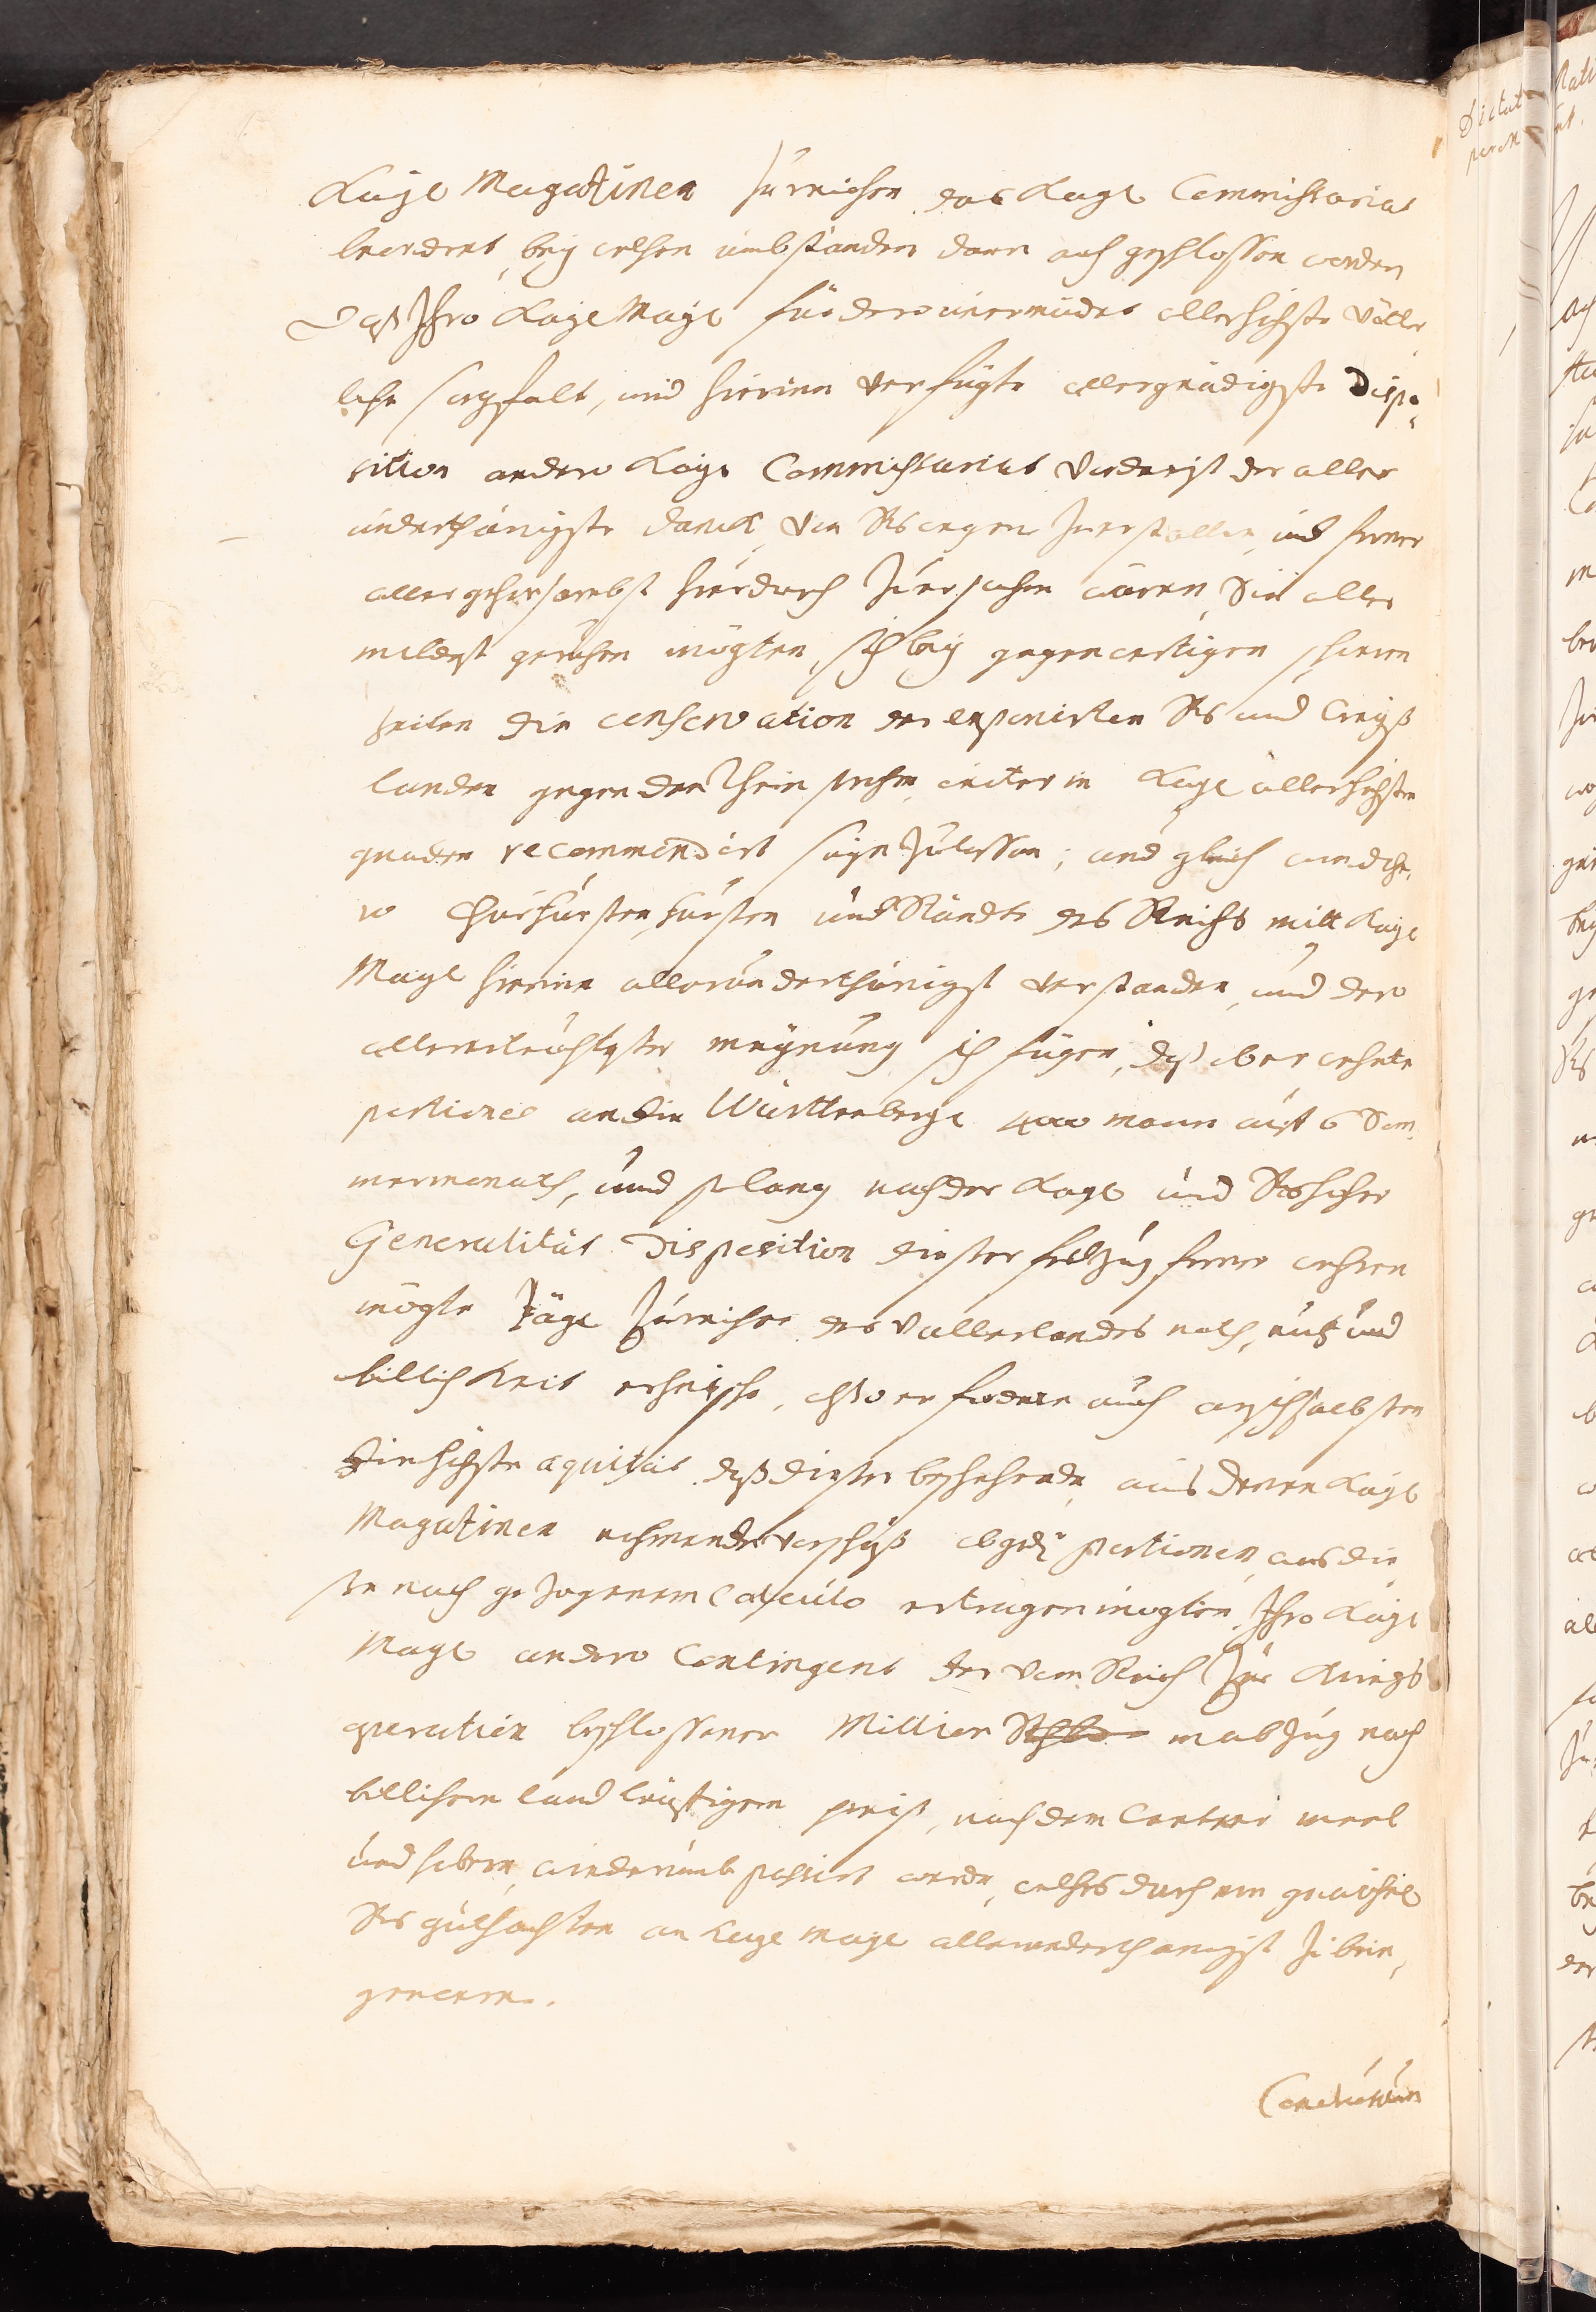 Kaÿl Magazinen zu reichen das Kaÿl Commissariat
beordert, beÿ welchen umbständen dann auch geschlossen worden
Daß Ihro Kaÿl Maÿl für dero unermüdet allerhöchste vätter
liche sorgfalt, und hierinn verfügte allergnädigste Dispo
sition an dero Kaÿl Commissariat vorderist der aller
underthänigste danck von Rs wegen zuerstatten, und ferner
allergehorsambst hierdurch zu ersuchen wären, Sie aller
mildest geruhen mögten, sich beÿ gegenwertigen schweren
zeiten die conservation der exponirten Rs und Creÿß
landen gegen den Rhein fehrner in Kaÿl allerhöchsten
gnaden recommendirt seÿn zulassen; und gleich wie dero
Churfürsten, Fürsten und Stände des Reichs mitt Kaÿl
Maÿl hierinn allerunderthänigst verstanden, und dero
allererleuchtester meÿnung sich fügen, daß ober wehnte
portiones an die Württenbergl 4000 mann auf 6 Som
mermonath, und so lang nach der Kaÿl und Rs hoher
Generalität Disposition dieser feldzug ferner wehren
mögte tägl zu reichen des vatterlandes noth, nutz und
billichkeit erheische, also erfordere auch ahn sich selbsten
die höchste æquitas daß dieser beschehende, aus denen Kaÿl
Magazinen nehmende vorschuß obgedl portionen, was die
se nach gezogenem Calculo ertragen mögten, Ihro Kaÿl
Maÿl an dero Contingent der vom Reich zur Kriegs
operation beschlossener Million in abzug nach
billichem landläuffigem preiß, nach dem Centner meel
und habern, wiederumb passirt werde, welches durch ein gewöhnl
Rs gutachten an Kaÿl Maÿl allerunderthänigst zu brin
gen wären.
Conclusum
Dictat